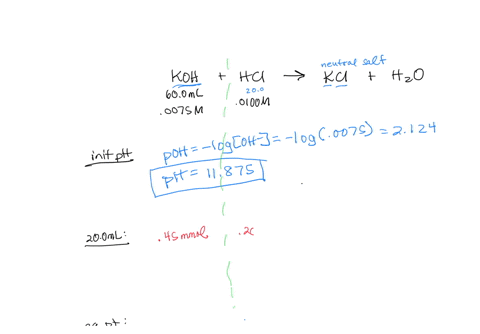 neutral salt
KOH + HCl → KCl + H₂O
60.0mL 20.0
.0075M .0100M
init pH pOH = -log[OH⁻] = -log(.0075) = 2.124
pH = 11.875
20.0mL: .45 mmol .20
eq. pt: